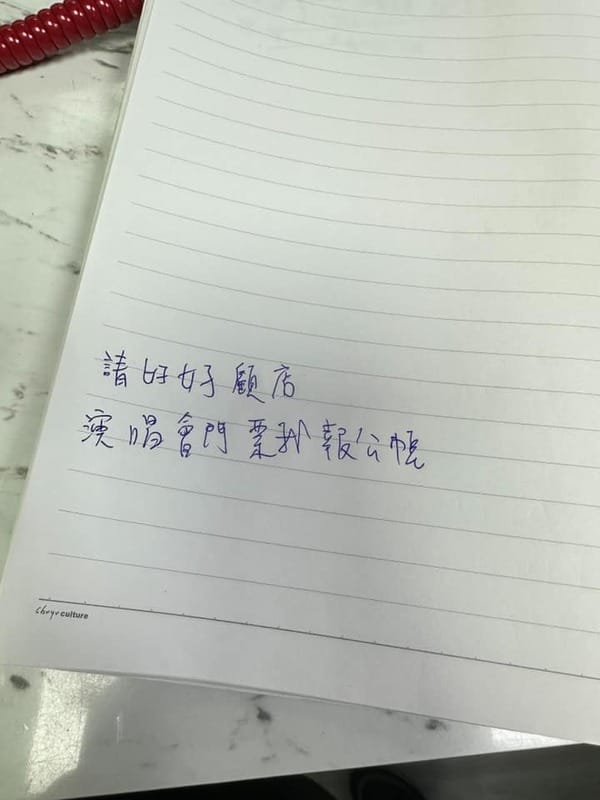 請好好顧店
演唱會門票我報公帳
culture